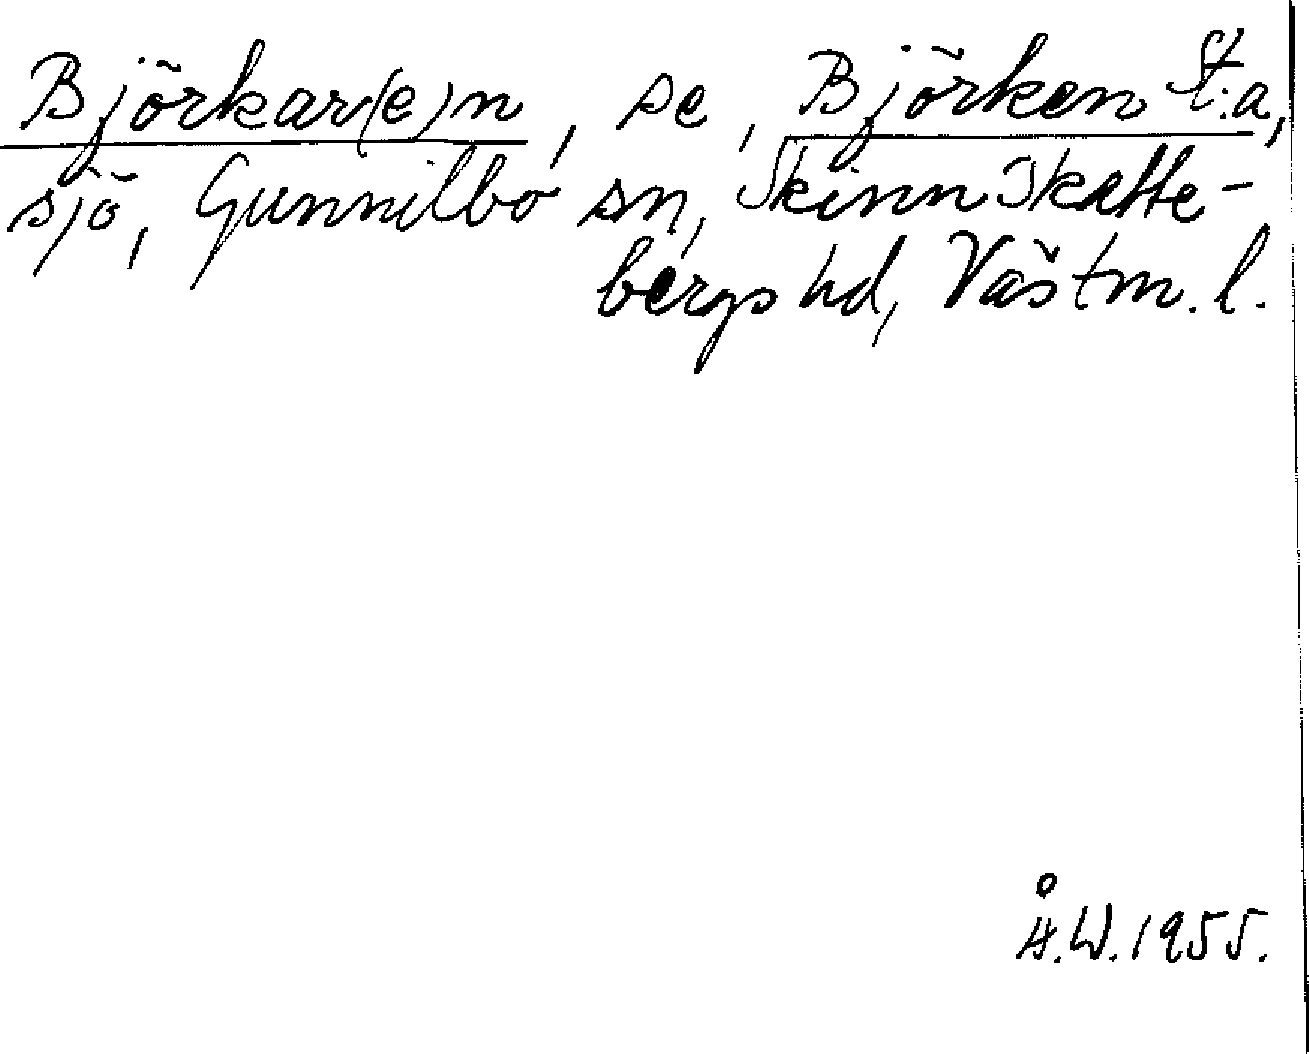 Björkar(e)n, se, Björken St:a,
sjö, Gunnilbo sn, Skinnskatte-
bergs hd, Västm. l.
Å.W. 1955.